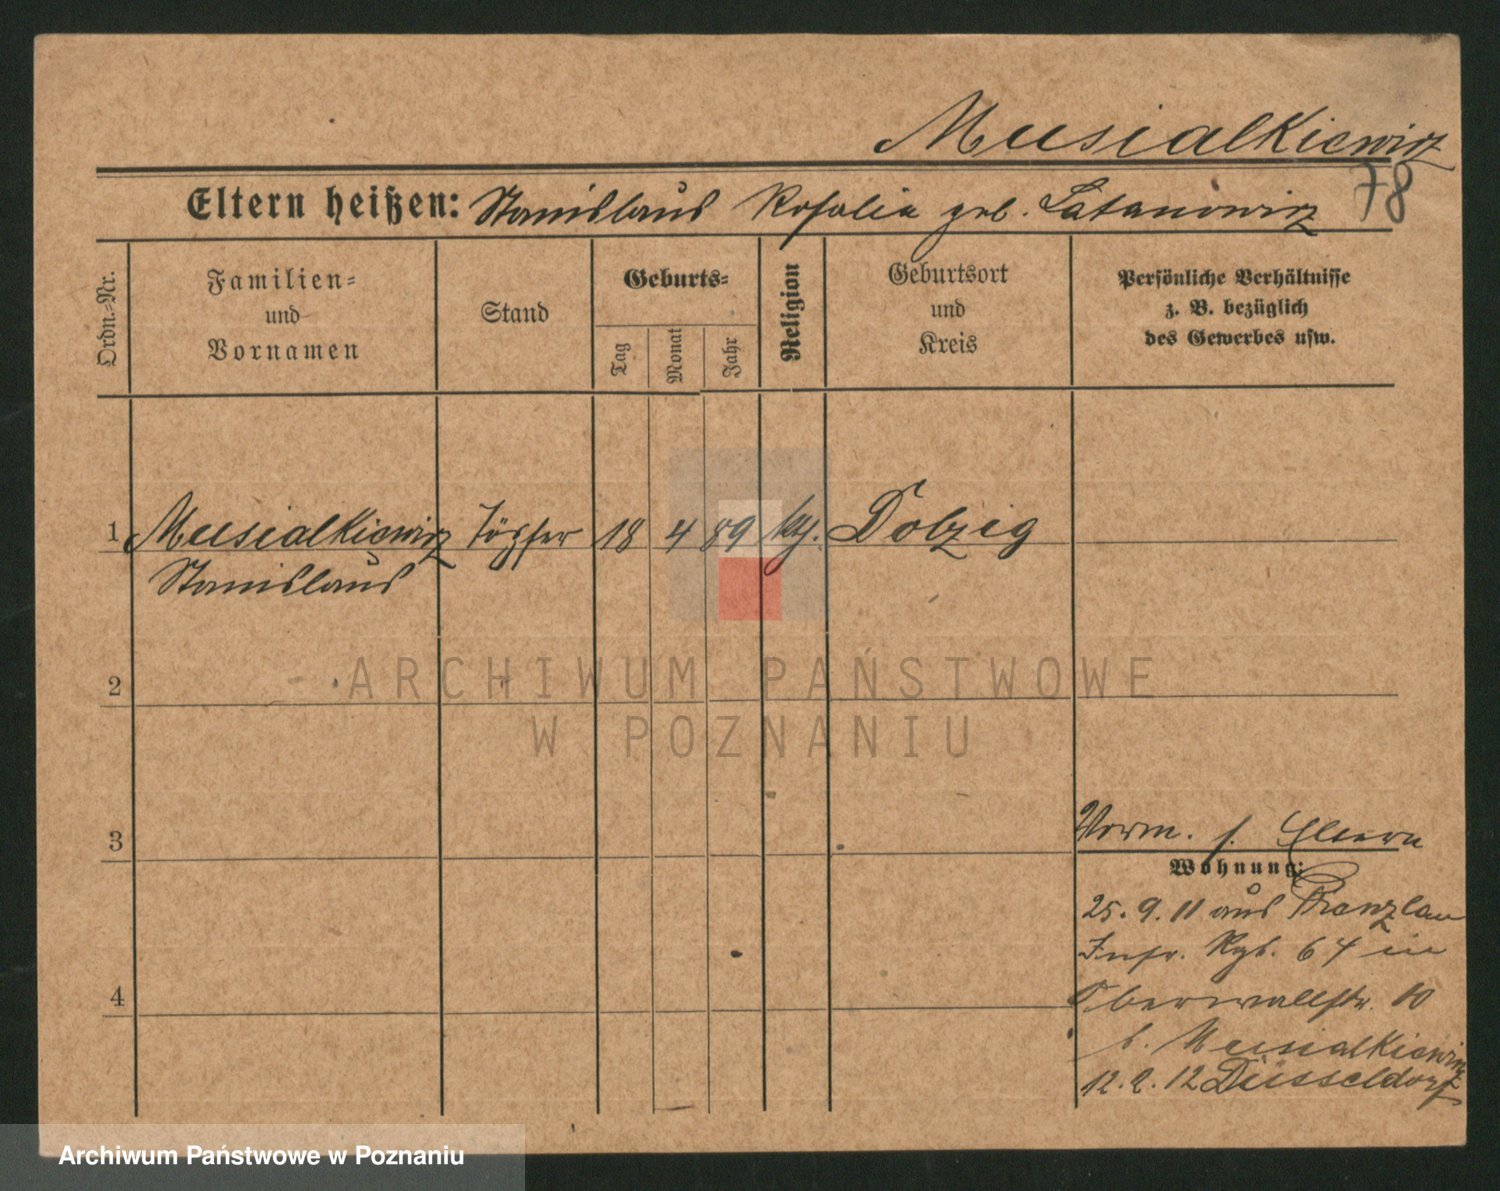 Musialkiewicz
Eltern heißen: Stanislaus Rosalia geb. Latanowicz 78
Ordn.=Nr.
Familien=
und
Vornamen
Stand
Geburts=
Tag
Monat
Jahr
Religion
Geburtsort
und
Kreis
Persönliche Verhältnisse
z. B. bezüglich
des Gewerbes usw.
1 Musialkiewicz Töpfer 18 4 89 kth. Dolzig
Stanislaus
ARCHIWUM PAŃSTWOWE
W POZNANIU
2
3
Vorm. s. Eltern
Wohnung:
25. 9. 11 aus Prenzlau
Infr. Rgt. 64 in
4
Oberwallstr. 10
b. Musialkiewicz
12. 2. 12 Düsseldorf
Archiwum Państwowe w Poznaniu